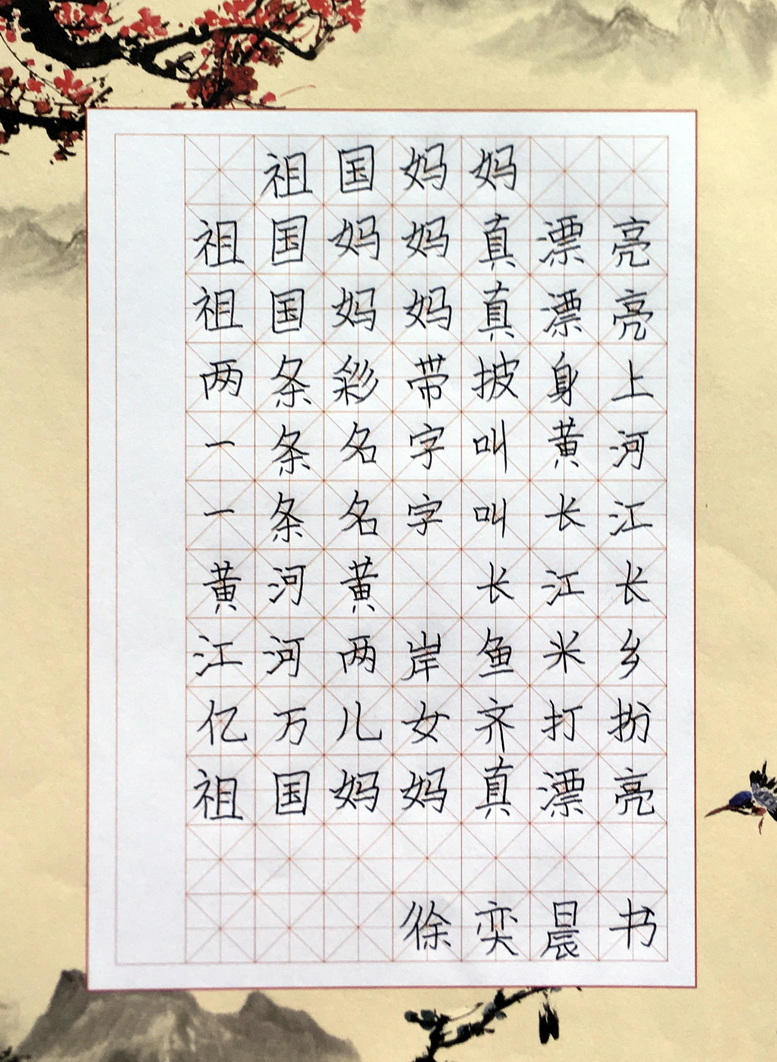 祖国妈妈
祖国妈妈真漂亮
祖国妈妈真漂亮
两条彩带披身上
一条名字叫黄河
一条名字叫长江
黄河黄 长江长
江河两岸鱼米乡
亿万儿女齐打扮
祖国妈妈真漂亮
徐奕晨书